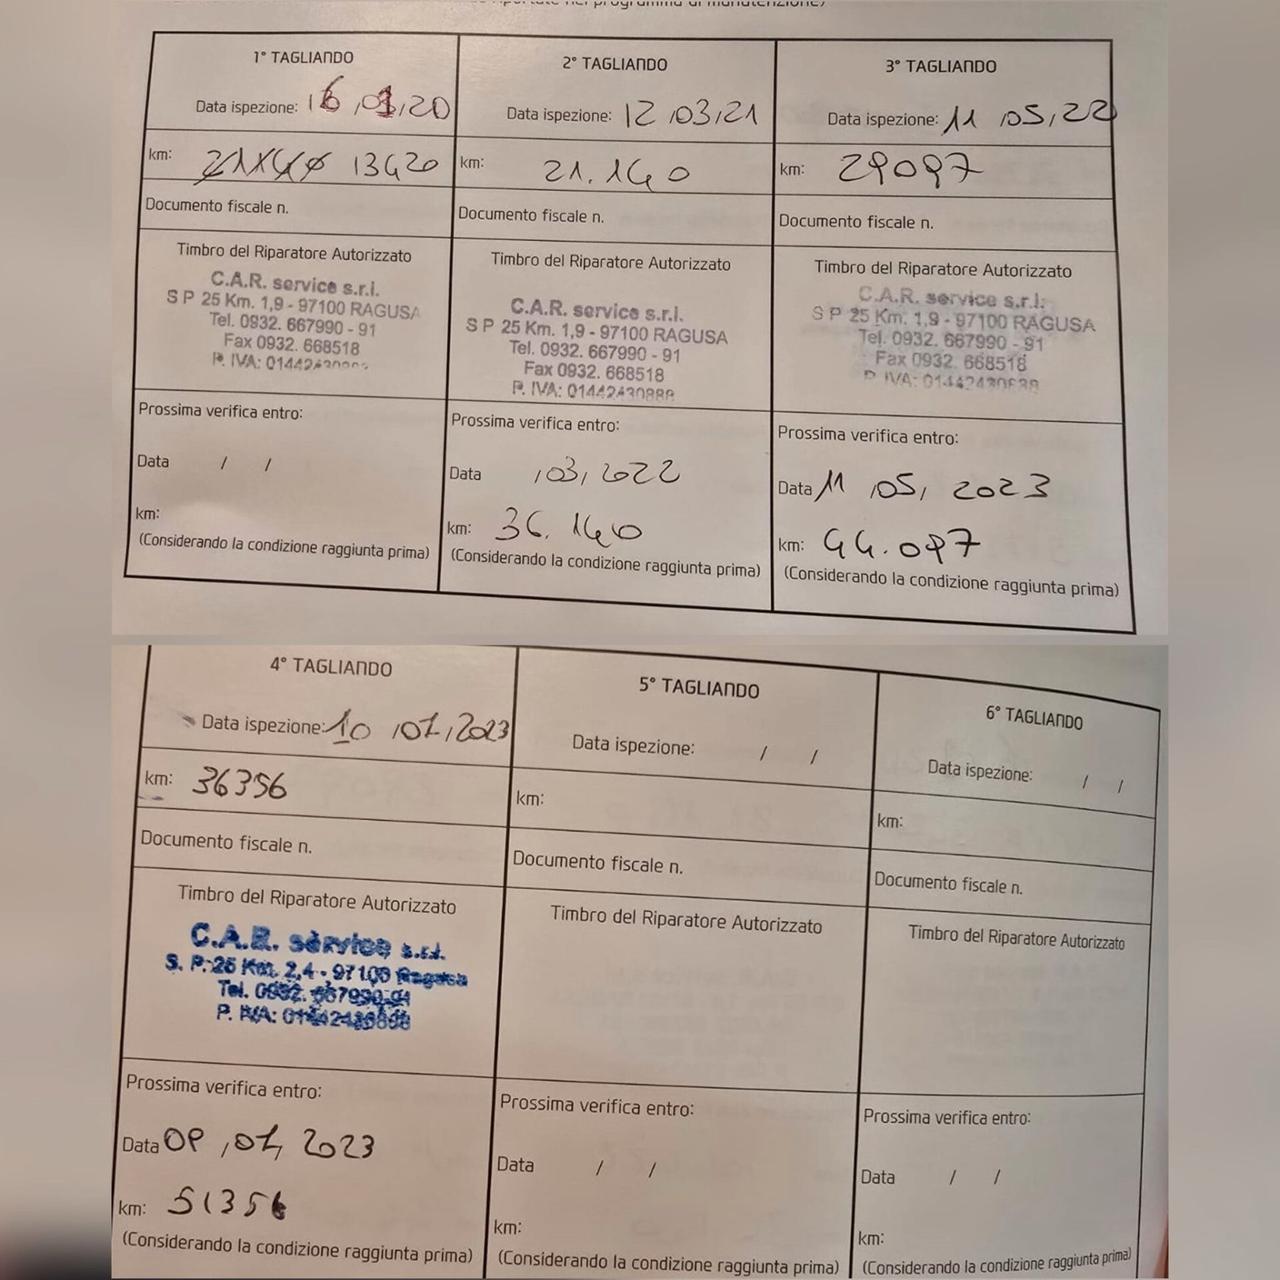 1° TAGLIANDO
Data ispezione: 16,01,20
km: 21140 13420
Documento fiscale n.
Timbro del Riparatore Autorizzato
C.A.R. service s.r.l.
S P 25 Km. 1,9 - 97100 RAGUSA
Tel. 0932. 667990 - 91
Fax 0932. 668518
P. IVA:
Prossima verifica entro:
Data / /
km:
(Considerando la condizione raggiunta prima)
2° TAGLIANDO
Data ispezione: 12 /03/21
km: 21.140
Documento fiscale n.
Timbro del Riparatore Autorizzato
C.A.R. service s.r.l.
S P 25 Km. 1,9 - 97100 RAGUSA
Tel. 0932. 667990 - 91
Fax 0932. 668518
P. IVA: 01442430888
Prossima verifica entro:
Data /03/2022
km: 36.140
(Considerando la condizione raggiunta prima)
3° TAGLIANDO
Data ispezione: 11 /05/22
km: 29097
Documento fiscale n.
Timbro del Riparatore Autorizzato
C.A.R. service s.r.l.
S P 25 Km. 1,9 - 97100 RAGUSA
Tel. 0932. 667990 - 91
Fax 0932. 668518
P. IVA:
Prossima verifica entro:
Data 11 /05/ 2023
km: 44.097
(Considerando la condizione raggiunta prima)
4° TAGLIANDO
Data ispezione: 10 /07/2023
km: 36356
Documento fiscale n.
Timbro del Riparatore Autorizzato
C.A.R. service s.r.l.
S. P. 25 Km. 2,4 - 97100 Ragusa
Tel. 0932. 667990-91
P. IVA:
Prossima verifica entro:
Data 09 /07/ 2023
km: 51356
(Considerando la condizione raggiunta prima)
5° TAGLIANDO
Data ispezione: / /
km:
Documento fiscale n.
Timbro del Riparatore Autorizzato
Prossima verifica entro:
Data / /
km:
(Considerando la condizione raggiunta prima)
6° TAGLIANDO
Data ispezione: / /
km:
Documento fiscale n.
Timbro del Riparatore Autorizzato
Prossima verifica entro:
Data / /
km:
(Considerando la condizione raggiunta prima)